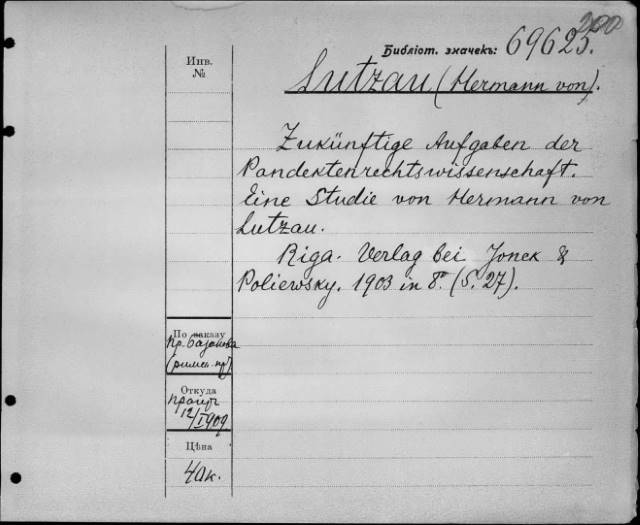 200
Библіот. значекъ: 69625.
Инв.
№
Lutzau (Hermann von).
Zukünftige Aufgaben der
Pandektenrechtswissenschaft.
Eine Studie von Hermann von
Lutzau.
Riga. Verlag bei Jonck &
Poliewsky. 1903 in 8°. (S. 27).
По заказу
Откуда
12/I 1909
Цѣна
40 к.